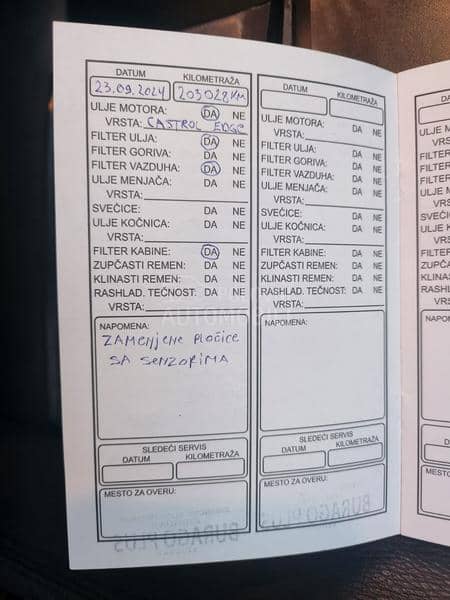 DATUM KILOMETRAŽA
23.09.2024 203028KM
ULJE MOTORA: DA NE
VRSTA: CASTROL EDGE
FILTER ULJA: DA NE
FILTER GORIVA: DA NE
FILTER VAZDUHA: DA NE
ULJE MENJAČA: DA NE
VRSTA:
SVEĆICE: DA NE
ULJE KOČNICA: DA NE
VRSTA:
FILTER KABINE: DA NE
ZUPČASTI REMEN: DA NE
KLINASTI REMEN: DA NE
RASHLAD. TEČNOST: DA NE
VRSTA:
NAPOMENA:
ZAMENJENE PLOČICE
SA SENZORIMA
SLEDEĆI SERVIS
DATUM KILOMETRAŽA
MESTO ZA OVERU:
DURAGO PLUS
DATUM KILOMETRAŽA
ULJE MOTORA: DA NE
VRSTA:
FILTER ULJA: DA NE
FILTER GORIVA: DA NE
FILTER VAZDUHA: DA NE
ULJE MENJAČA: DA NE
VRSTA:
SVEĆICE: DA NE
ULJE KOČNICA: DA NE
VRSTA:
FILTER KABINE: DA NE
ZUPČASTI REMEN: DA NE
KLINASTI REMEN: DA NE
RASHLAD. TEČNOST: DA NE
VRSTA:
NAPOMENA:
SLEDEĆI SERVIS
DATUM KILOMETRAŽA
MESTO ZA OVERU:
DURAGO PLUS